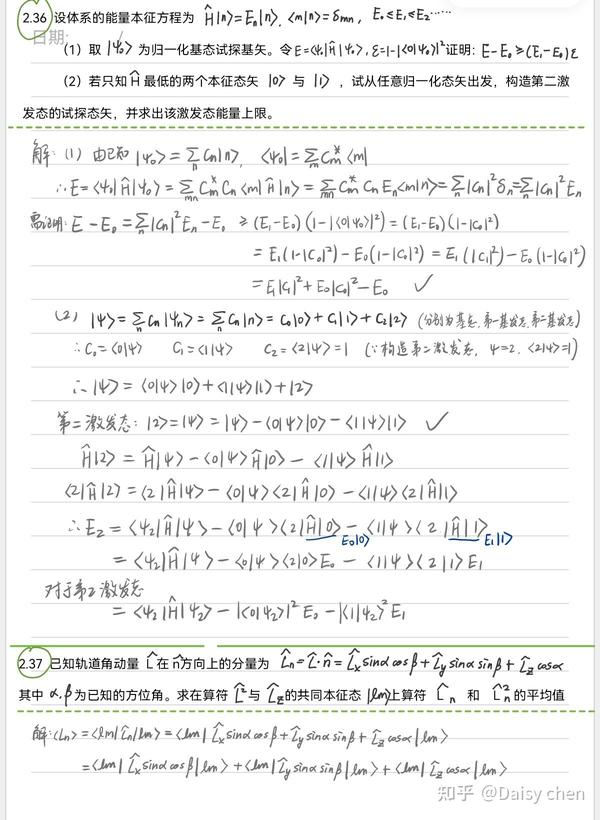 2.36 设体系的能量本征方程为 Ĥ|n⟩=Eₙ|n⟩, ⟨m|n⟩=δₘₙ, E₀≤E₁≤E₂……
日期:
(1) 取 |ψ₀⟩ 为归一化基态试探基矢。令E=⟨ψ₀|Ĥ|ψ₀⟩, ε=1-|⟨0|ψ₀⟩|² 证明: E-E₀≥(E₁-E₀)ε
(2) 若只知Ĥ最低的两个本征态矢 |0⟩ 与 |1⟩，试从任意归一化态矢出发，构造第二激
发态的试探态矢，并求出该激发态能量上限。
解: (1) 由已知 |ψ₀⟩=∑ₙ Cₙ|n⟩, ⟨ψ₀|=∑ₘ Cₘ* ⟨m|
∴E=⟨ψ₀|Ĥ|ψ₀⟩=∑ₘₙ Cₘ* Cₙ ⟨m|Ĥ|n⟩=∑ₘₙ Cₘ* Cₙ Eₙ⟨m|n⟩=∑ₙ|Cₙ|²δₙ=∑ₙ|Cₙ|²Eₙ
需证明: E-E₀=∑ₙ|Cₙ|²Eₙ-E₀ ≥(E₁-E₀)(1-|⟨0|ψ₀⟩|²)=(E₁-E₀)(1-|C₀|²)
=E₁(1-|C₀|²)-E₀(1-|C₀|²)=E₁(|C₁|²)-E₀(1-|C₀|²)
=E₁|C₁|²+E₀|C₀|²-E₀ ✓
(2) |ψ⟩=∑ₙ Cₙ|ψₙ⟩=∑ₙ Cₙ|n⟩=C₀|0⟩+C₁|1⟩+C₂|2⟩ (分别为基态,第一激发态,第二激发态)
∴C₀=⟨0|ψ⟩ C₁=⟨1|ψ⟩ C₂=⟨2|ψ⟩=1 (∵构造第二激发态, ψ=2, ⟨2|ψ⟩=1)
∴|ψ⟩=⟨0|ψ⟩|0⟩+⟨1|ψ⟩|1⟩+|2⟩
第二激发态: |2⟩=|ψ⟩=|ψ⟩-⟨0|ψ⟩|0⟩-⟨1|ψ⟩|1⟩ ✓
Ĥ|2⟩=Ĥ|ψ⟩-⟨0|ψ⟩Ĥ|0⟩-⟨1|ψ⟩Ĥ|1⟩
⟨2|Ĥ|2⟩=⟨2|Ĥ|ψ⟩-⟨0|ψ⟩⟨2|Ĥ|0⟩-⟨1|ψ⟩⟨2|Ĥ|1⟩
∴E₂=⟨ψ₂|Ĥ|ψ⟩-⟨0|ψ⟩⟨2|Ĥ|0⟩-⟨1|ψ⟩⟨2|Ĥ|1⟩
E₀|0⟩ E₁|1⟩
=⟨ψ₂|Ĥ|ψ⟩-⟨0|ψ⟩⟨2|0⟩E₀-⟨1|ψ⟩⟨2|1⟩E₁
对于第二激发态
=⟨ψ₂|Ĥ|ψ₂⟩-|⟨0|ψ₂⟩|²E₀-|⟨1|ψ₂⟩²E₁
2.37 已知轨道角动量 L̂在n̂方向上的分量为 L̂ₙ=L̂·n̂=L̂ₓsinαcosβ+L̂ᵧsinαsinβ+L̂_z cosα
其中 α,β为已知的方位角。求在算符 L̂²与L̂_z的共同本征态|lm⟩上算符 L̂ₙ 和 L̂ₙ²的平均值
解: ⟨Lₙ⟩=⟨lm|L̂ₙ|lm⟩=⟨lm|L̂ₓsinαcosβ+L̂ᵧsinαsinβ+L̂_z cosα|lm⟩
=⟨lm|L̂ₓsinαcosβ|lm⟩+⟨lm|L̂ᵧsinαsinβ|lm⟩+⟨lm|L̂_z cosα|lm⟩
知乎 @Daisy chen